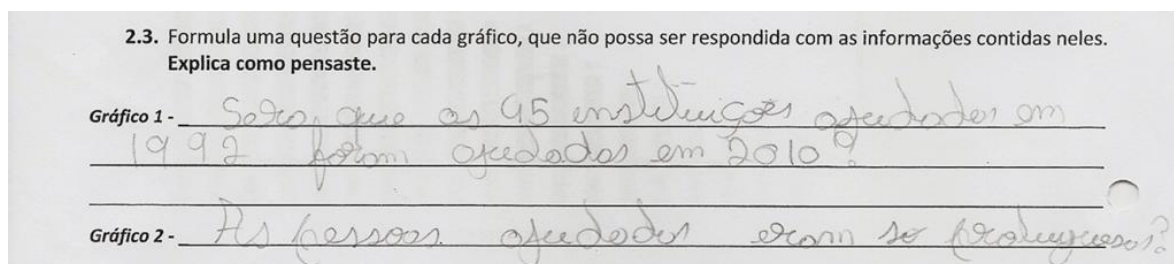 2.3. Formula uma questão para cada gráfico, que não possa ser respondida com as informações contidas neles.
Explica como pensaste.
Gráfico 1 - Sera que as 95 instituições ajudadas em
1992 foram ajudadas em 2010?
Gráfico 2 - As pessoas ajudadas eram so portuguesas?